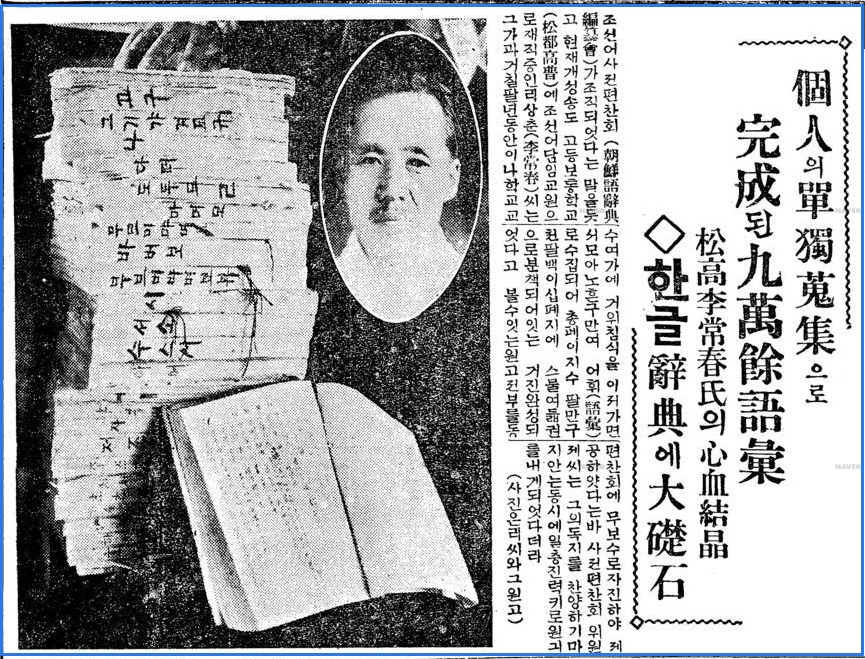 個人의 單獨蒐集으로
完成된 九萬餘語彙
松高李常春氏의 心血結晶
◇한글辭典에 大礎石
조선어사뎐편찬회 (朝鮮語辭典
編纂會)가조직되엇다는 말을듯
고 현재개성송도 고등보통학교
(松都高普)에조선어담임교원으
로재직중인리상춘(李常春)씨는
그가과거칠팔년동안이나학교교
수여가에 거위침식을 이저가면
서모아노흔구만여 어휘(語彙)
로수집되어 총페이지수 팔만구
쳔팔백이십페지에 스물여듧권
으로분책되어잇는 거진완성되
엇다고 볼수잇는원고전부를동
편찬회에 무보수로자진하야 제
공하얏다는바 사뎐편찬회 위원
제씨는 그의독지를 찬양하기마
지안는동시에일층진력키로원긔
를내게되엇다더라
(사진은리씨와그원고)
NAVER